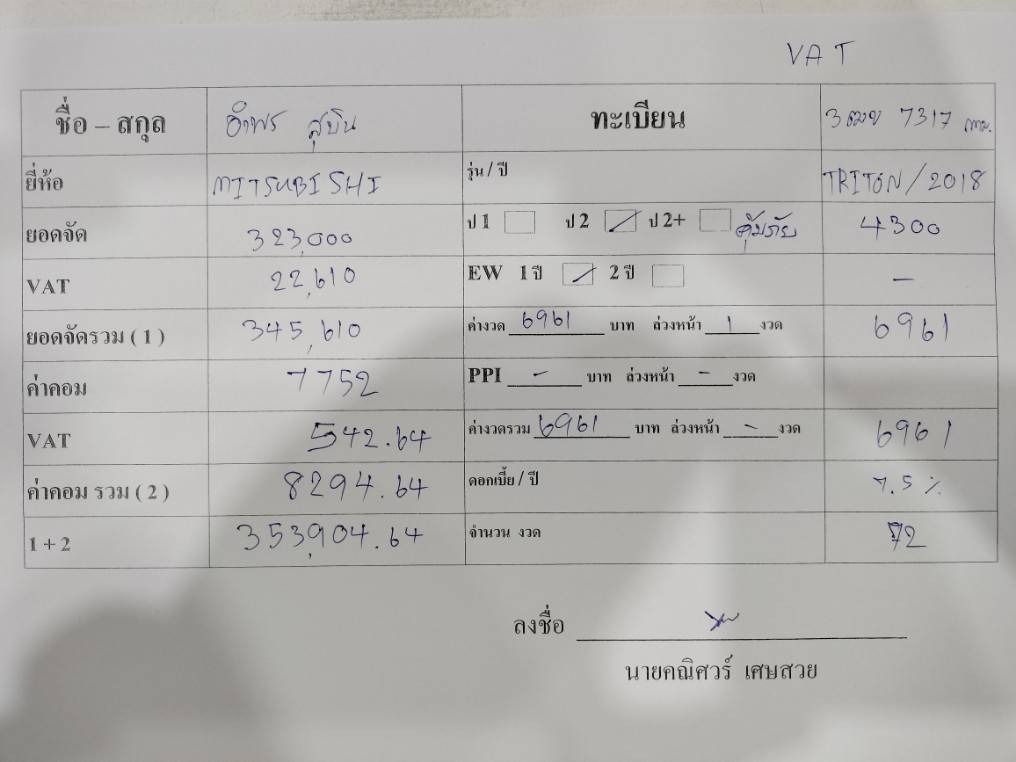 VAT
ชื่อ – สกุล อำพร สุบิน ทะเบียน 3ฒฆ 7317 กทม.
ยี่ห้อ MITSUBISHI รุ่น / ปี TRITON / 2018
ยอดจัด 323,000 ป 1 ป 2 ป 2+ คุ้มภัย 4300
VAT 22,610 EW 1 ปี 2 ปี –
ยอดจัดรวม ( 1 ) 345,610 ค่างวด 6961 บาท ล่วงหน้า 1 งวด 6961
ค่าคอม 7752 PPI – บาท ล่วงหน้า – งวด
VAT 542.64 ค่างวดรวม 6961 บาท ล่วงหน้า – งวด 6961
ค่าคอม รวม ( 2 ) 8294.64 ดอกเบี้ย / ปี 7.5 %
1 + 2 353,904.64 จำนวน งวด 72
ลงชื่อ
นายคณิศวร์ เศษสวย